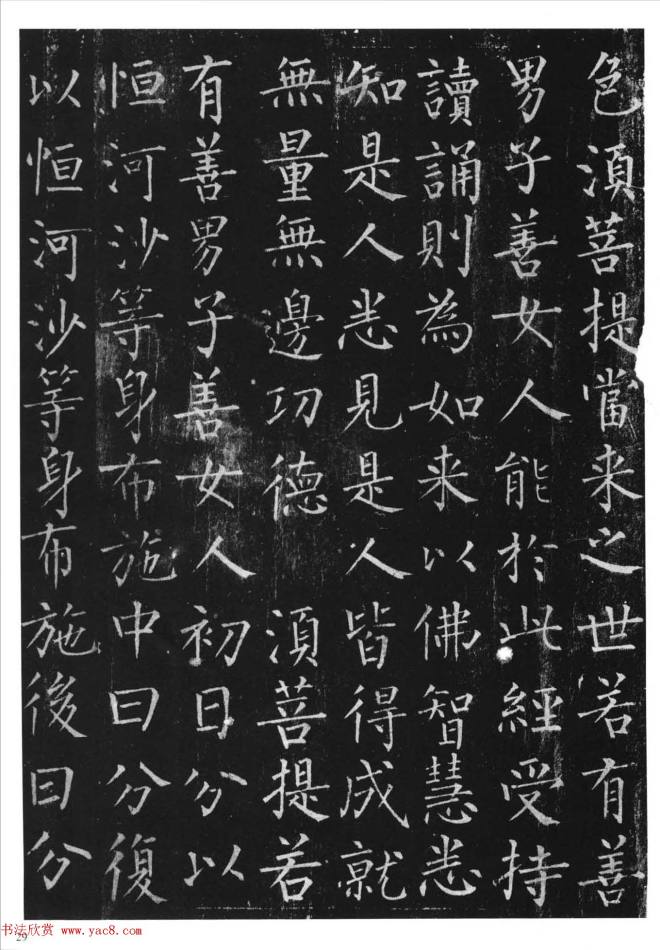 色須菩提當来之世若有善
男子善女人能於此經受持
讀誦則為如来以佛智慧悉
知是人悉見是人皆得成就
無量無邊功德 須菩提若
有善男子善女人初日分以
恒河沙等身布施中日分復
以恒河沙等身布施後日分
书法欣赏 www.yac8.com
29